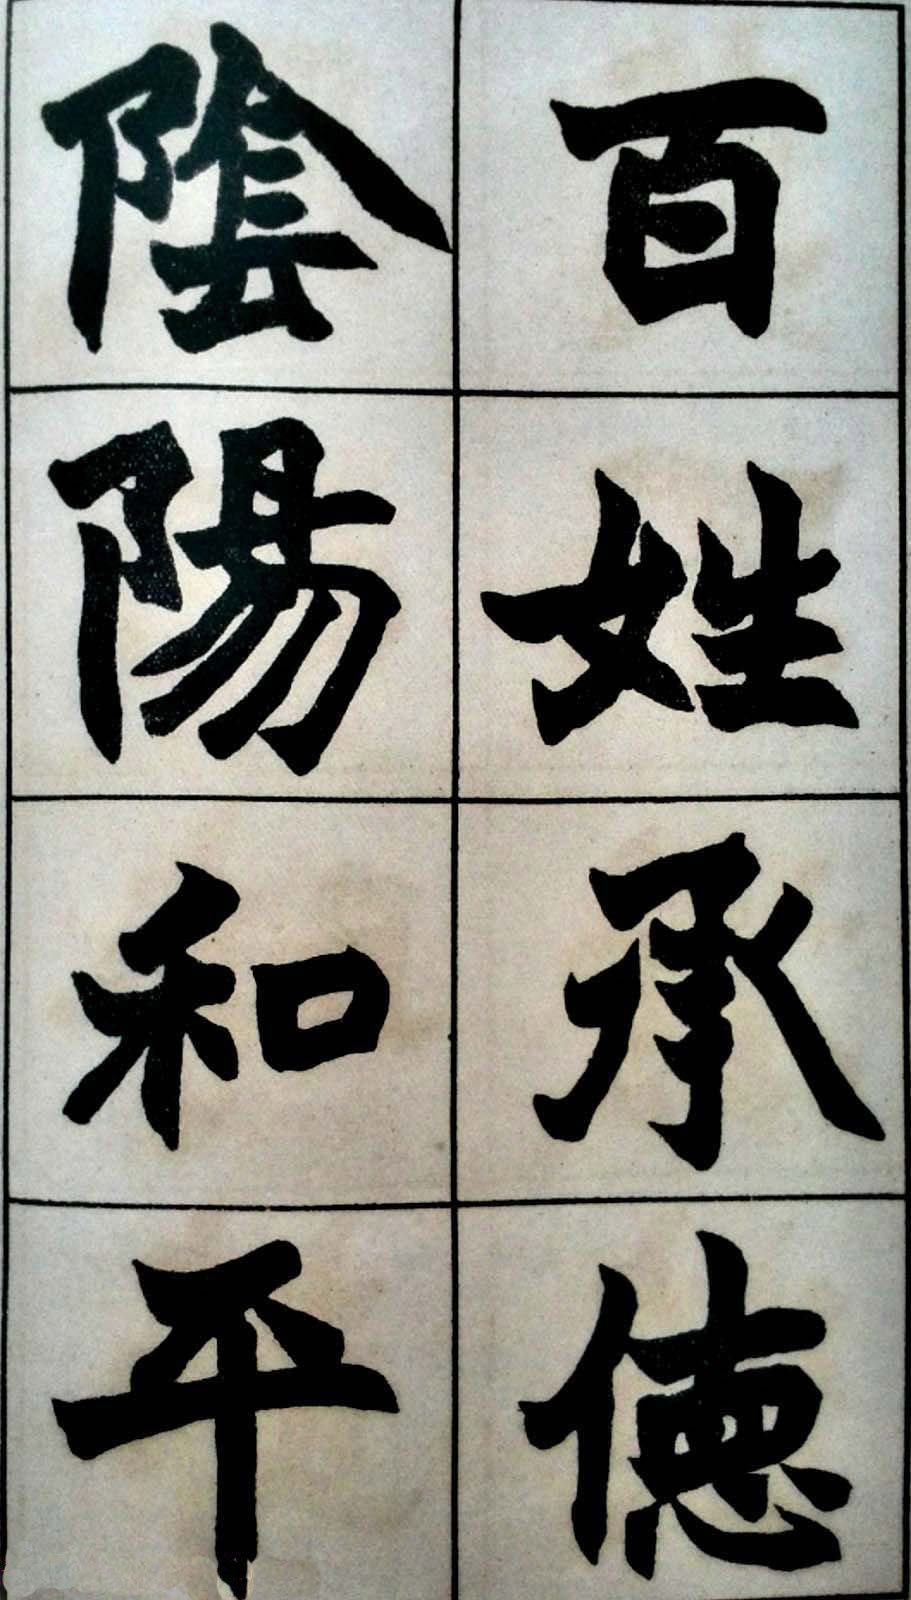 百姓承德
陰陽和平